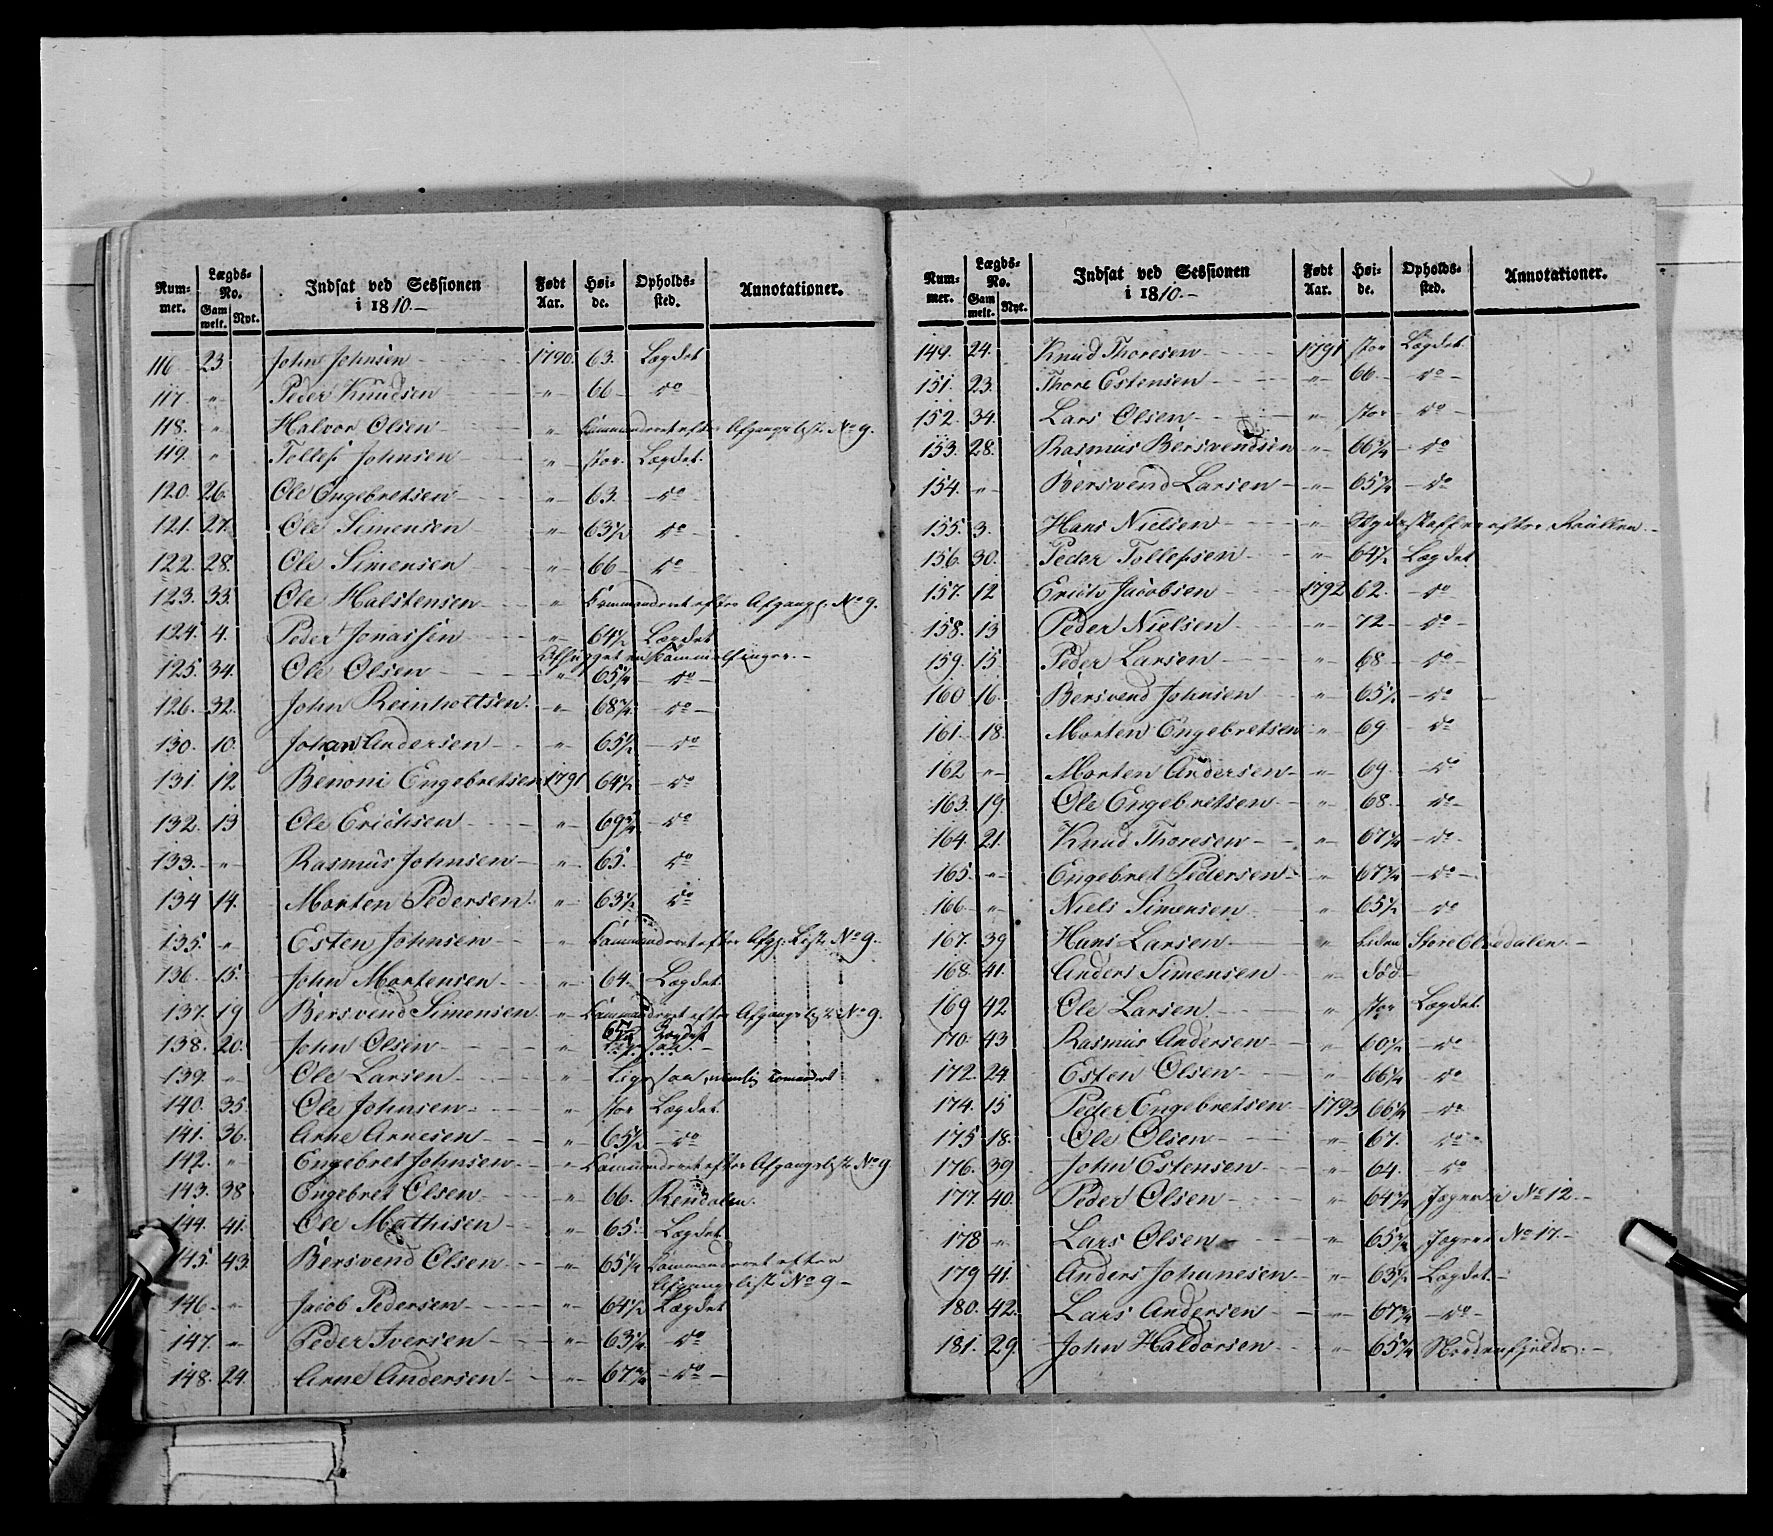 Num-mer. Lægds-No. Gam melt. Nyt. Indsat ved Sessionen i 1810.- Født Aar. Høi-de. Opholds-sted. Annotationer.
116 23. John Johnsen 1790. 63. Lægdet
117. " Peder Knudsen " 66 do
118. " Halvor Olsen " Commanderet efter Afgangsliste No 9.
119. " Tollef Johnsen " stor. Lægdet.
120. 26. Ole Engebretsen " 63. do
121. 27. Ole Simensen " 63½ do
122. 28. Ole Simensen " 66 do
123. 33. Ole Halstensen " Commanderet efter Afgangsl. No 9.
124. 4. Peder Jonassen " 64½ Lægdet
125. 34. Ole Olsen " 65¼ do
126. 32. John Reinholtsen. " 68¾ do
130. 10. Johan Andersen " 65½ do
131. 12. Benoni Engebretsen 1791 64½ do
132. 13 Ole Erichsen " 69¾ do
133. " Rasmus Johnsen " 65. do
134 14. Morten Pedersen. " 63½ do
135. " Esten Johnsen " Commanderet efter Afg. Liste No 9.
136. 15. John Mortensen " 64. Lægdet.
137. 19 Bersvend Simensen " Commanderet efter Afgangsliste No 9.
138. 20. John Olsen " Lægdet
139. " Ole Larsen " Ligesaa, nemlig Comanderet
140. 35. Ole Johnsen " stor Lægdet.
141. 36. Arne Arnesen " 65½ do
142. " Engebret Johnsen " Commanderet efter Afgangsliste No 9
143. 38 Engebret Olsen " 66. Rendalen.
144. 41. Ole Mathisen " 65. Lægdet
145. 43. Bersvend Olsen " 65¼ Commanderet efter
Afgangsliste No 9
146 " Jacob Pedersen " 64½ Lægdet
147. " Peder Iversen " 63¼ do
148. 24. Arne Andersen " 67¾ do
Num-mer. Lægds-No. Gam melt. Nyt. Indsat ved Sessionen i 1810.- Født Aar. Høi-de. Opholds-sted. Annotationer.
149. 24. Knud Thoresen 1791 stor Lægdet
151. 23. Thore Estensen " 66. do
152. 34. Lars Olsen " stor do
153. 28. Rasmus Bersvendsen " 66¼ do
154. " Bersvend Larsen " 65¼ do
155. 3. Hans Nielsen " efter Rullen
156. 30. Peder Tollefsen " 64½ Lægdet
157. 12 Erich Jacobsen 1792 62. do
158. 13 Peder Nielsen " 72 do
159. 15 Peder Larsen " 68. do
160 16. Bersvend Johnsen " 65½ do
161. 18. Morten Engebretsen " 69. do
162 " Morten Andersen " 69. do
163. 19. Ole Engebretsen " 68. do
164. 21. Knud Thoresen " 67¼ do
165. " Engebret Pedersen " 67¾ do
166 " Niels Simensen " 65½ do
167. 39 Hans Larsen " Liden Store Elvedalen
168. 41. Anders Simensen " død
169 42 Ole Larsen " stor Lægdet
170. 43 Rasmus Andersen " 60½ do
172. 24. Esten Olsen " 66¼ do
174. 15 Peder Engebretsen 1793 66¼ do
175 18. Ole Olsen " 67. do
176. 39 John Estensen " 64. do
177. 40. Peder Olsen " 64¾ Jæger i No 12.
178 " Lars Olsen " 65¾ Jæger No 17.
179 41. Anders Johanesen " 63½ Lægdet
180. 42. Lars Andersen " 67¾ do
181. 29 John Haldorsen " 65¾ Nordenfields.